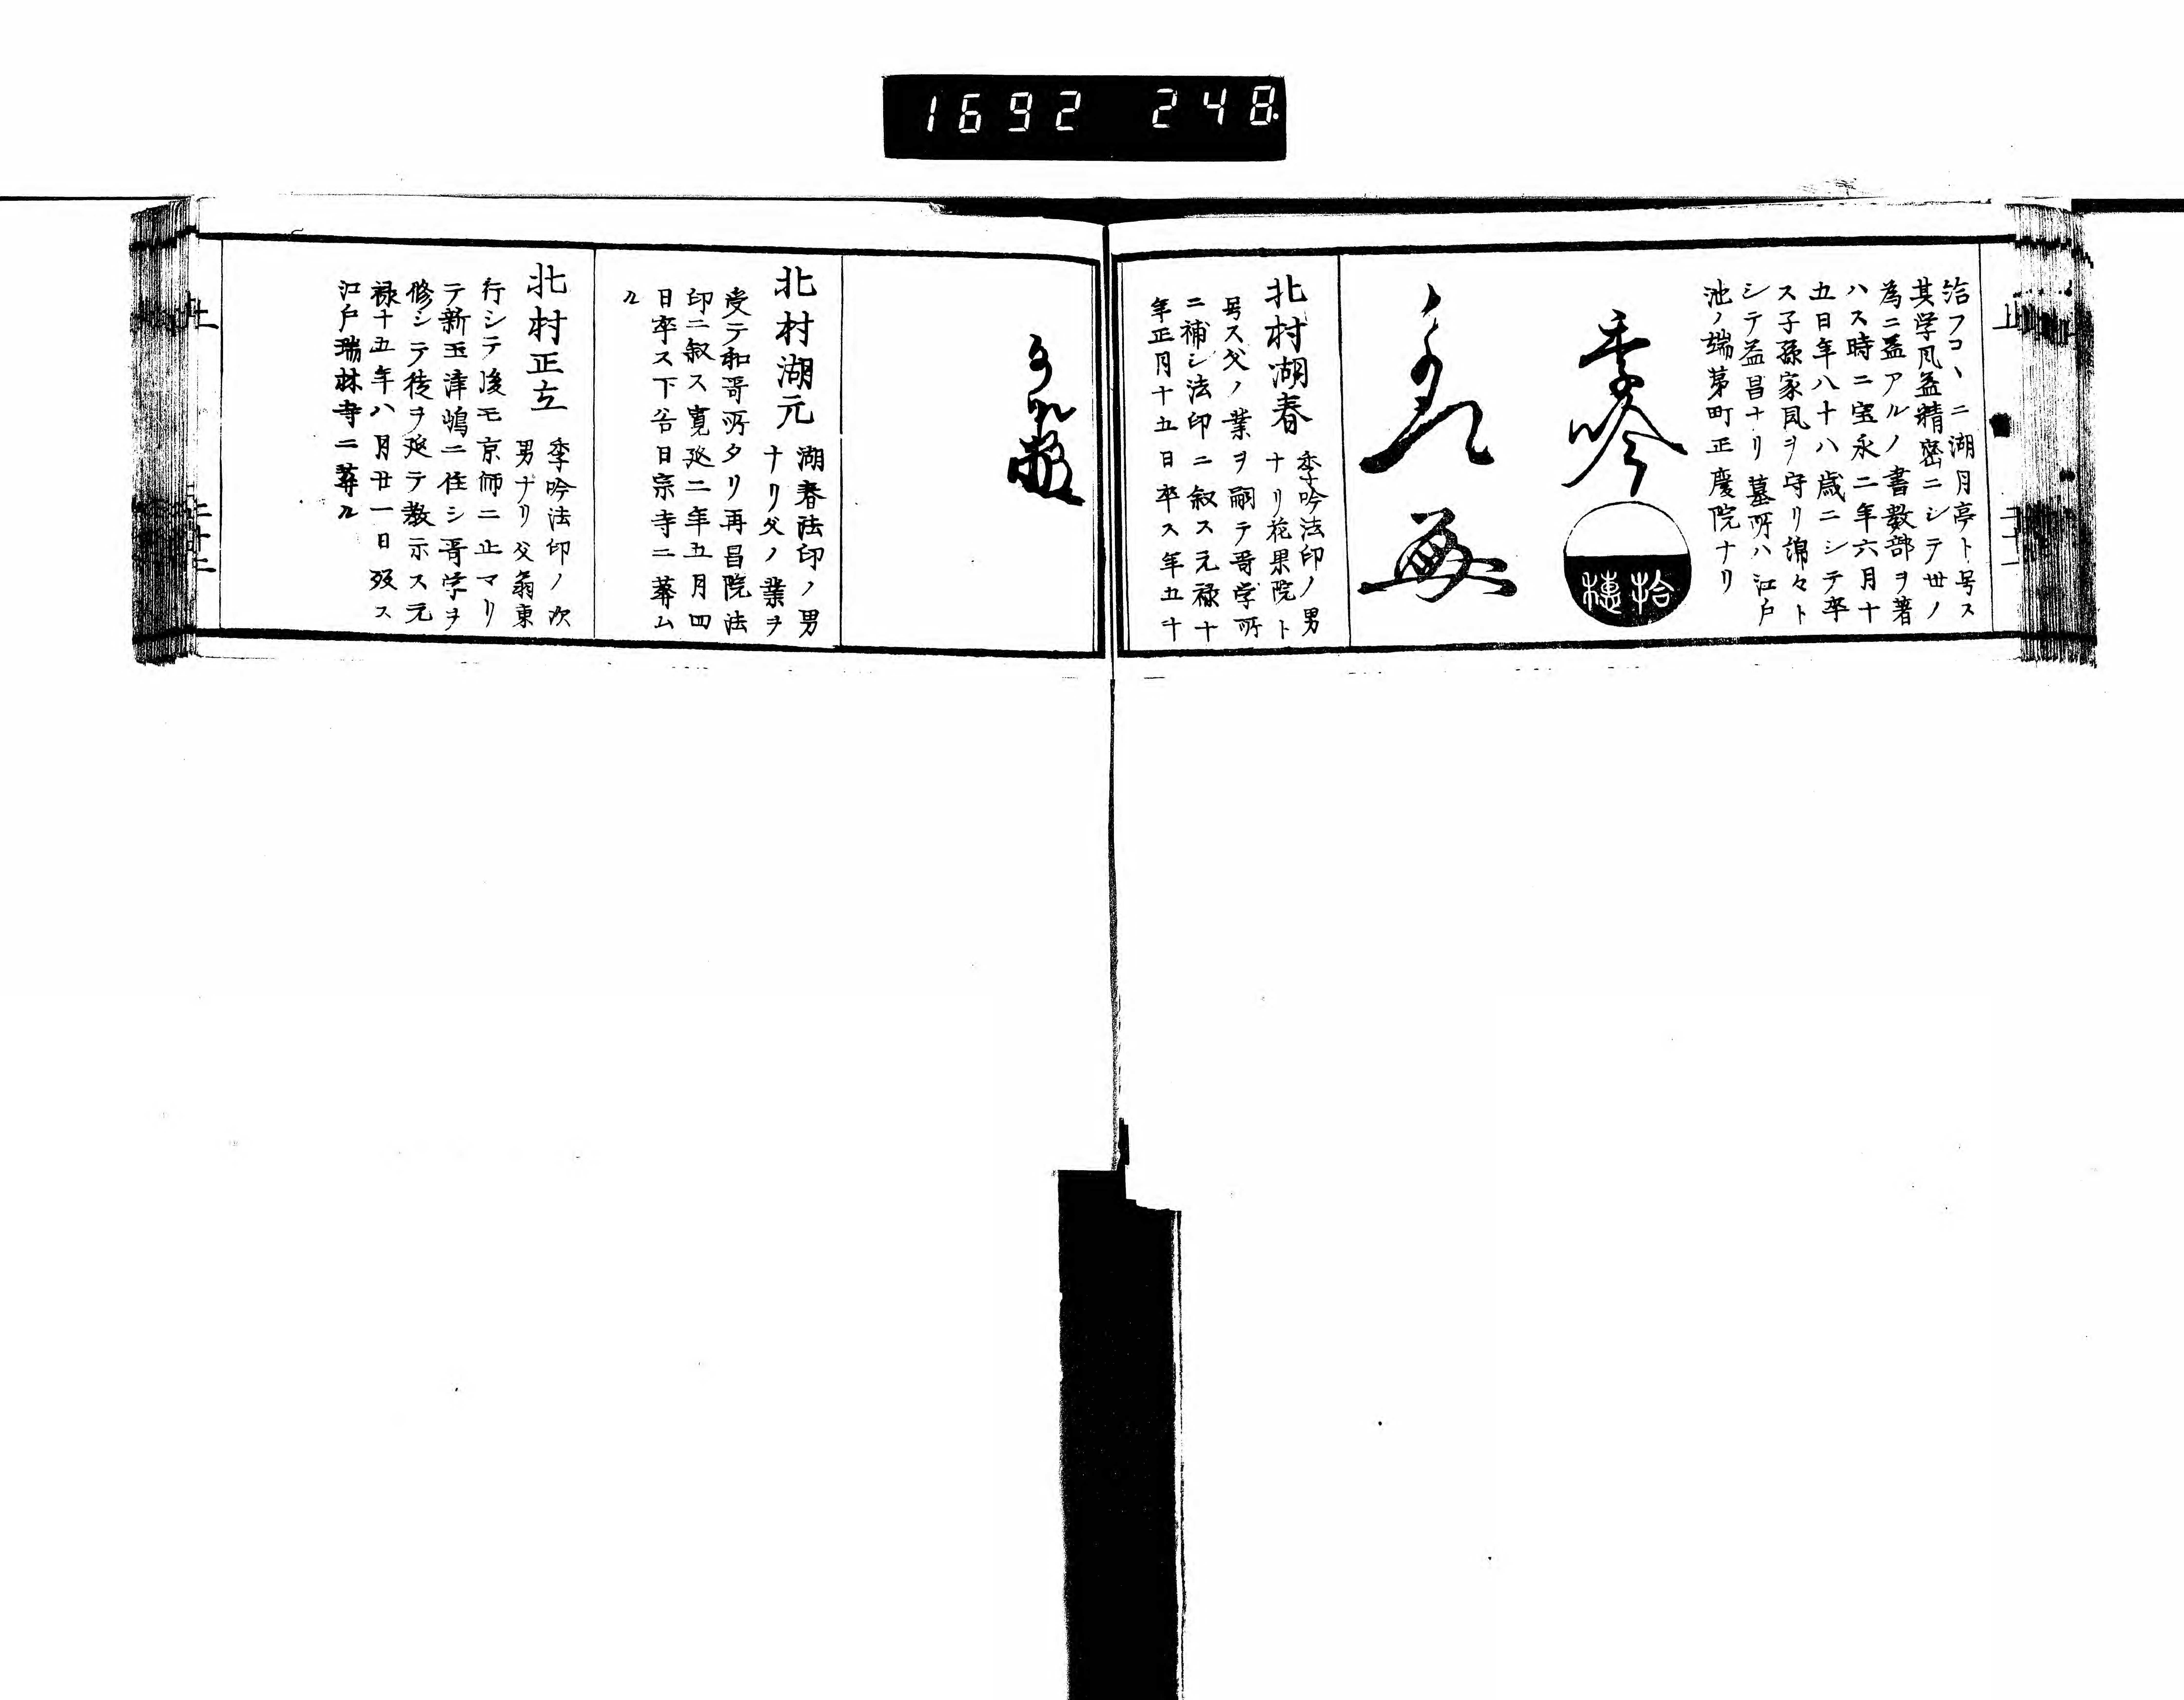 1692 248
洽フコヽニ湖月亭ト号ス
其学風益精密ニシテ世ノ
為ニ益アルノ書数部ヲ著
ハス時ニ宝永二年六月十
五日年八十八歳ニシテ卒
ス子孫家風ヲ守リ綿々ト
シテ益昌ナリ墓所ハ江戸
池ノ端茅町正慶院ナリ
季吟
拾
穂
北村湖春
季吟法印ノ男
ナリ花果院ト
号ス父ノ業ヲ嗣テ哥学所
ニ補シ法印ニ叙ス元禄十
年正月十五日卒ス年五十
北村湖元
湖春法印ノ男
ナリ父ノ業ヲ
受テ和哥所タリ再昌院法
印ニ叙ス寛延二年五月四
日卒ス下谷日宗寺ニ葬ム
ル
北村正立
季吟法印ノ次
男ナリ父翁東
行シテ後モ京師ニ止マリ
テ新玉津嶋ニ住シ哥学ヲ
修シテ徒ヲ延テ教示ス元
禄十五年八月廿一日歿ス
江戸瑞林寺ニ葬ル